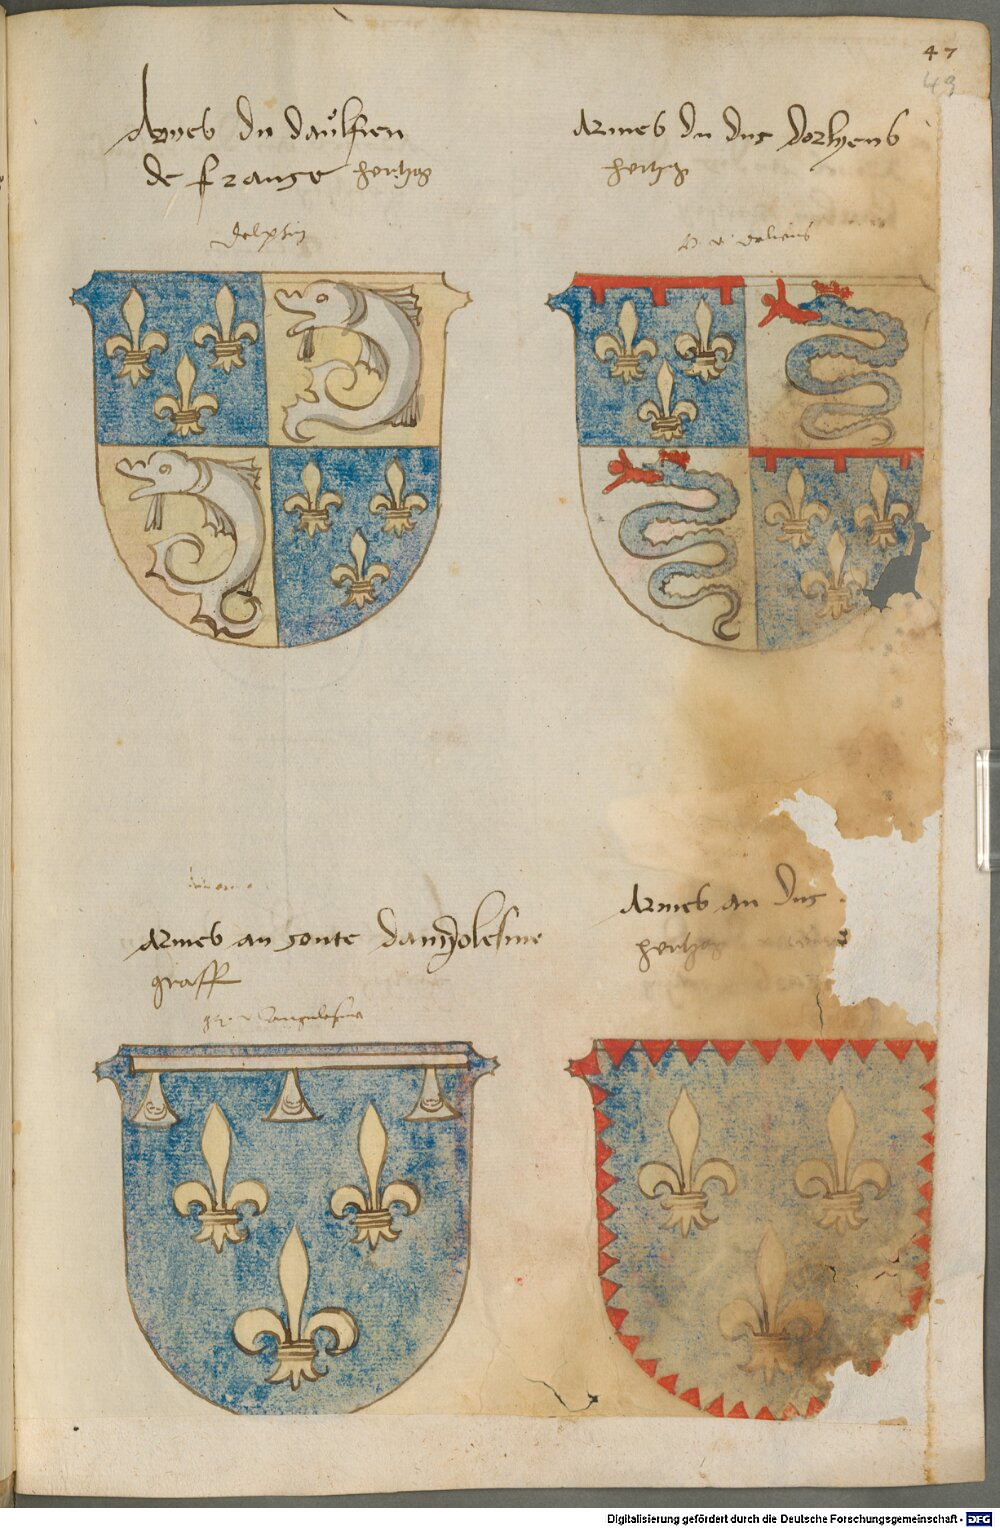 47
49
Armes du daulfien
de france hertzog
delphin
Armes du duc dorlyens
hertzog
H. v. orliens
Armes au conte dangolesme
graff
gr. v. angulesma
Armes au duc
hertzog
Digitalisierung gefördert durch die Deutsche Forschungsgemeinschaft - DFG